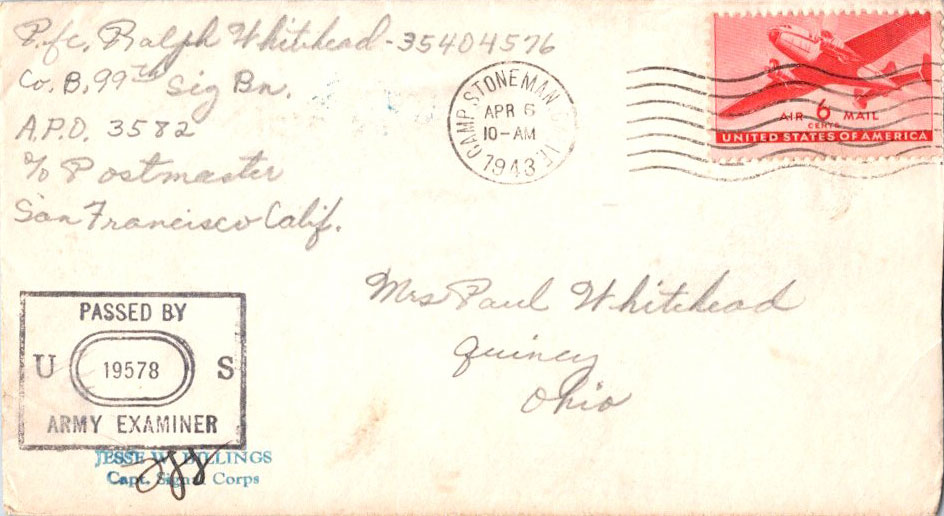 P.f.c. Ralph Whitehead - 35404576
Co. B, 99th Sig Bn.
A.P.O. 3582
c/o Postmaster
San Francisco Calif.
CAMP STONEMAN
APR 6
10-AM
1943
AIR 6 MAIL
CENTS
UNITED STATES OF AMERICA
Mrs Paul Whitehead
Quincy
Ohio
PASSED BY
U 19578 S
ARMY EXAMINER
JESSE W BILLINGS
Capt. Signal Corps